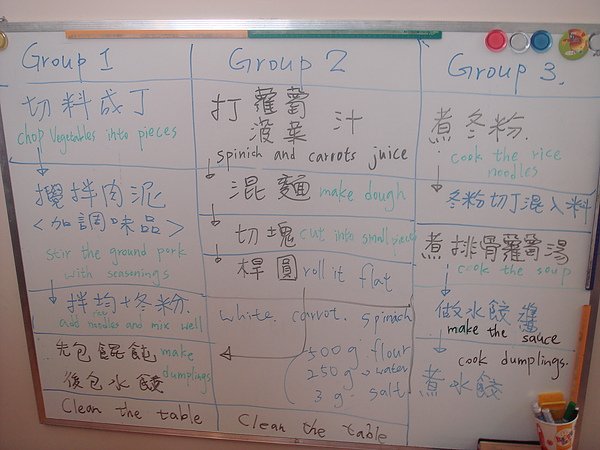 Group 1
切料成丁
chop vegetables into pieces
攪拌肉泥
<加調味品>
stir the ground pork
with seasonings
拌均+冬粉.
rice
add noodles and mix well
先包餛飩 make
dumplings
後包水餃
Clean the table
Group 2
打 蘿蔔 汁
菠菜
spinich and carrots juice
混麵 make dough
切塊 cut into small pieces
桿圓 roll it flat
white. carrot. spinach
500 g. flour
250 g → water
3 g. salt.
Clean the table
Group 3.
煮冬粉.
cook the rice
noodles
冬粉切丁混入料
煮排骨蘿蔔湯
cook the soup
做水餃醬
make the sauce
cook dumplings.
煮水餃